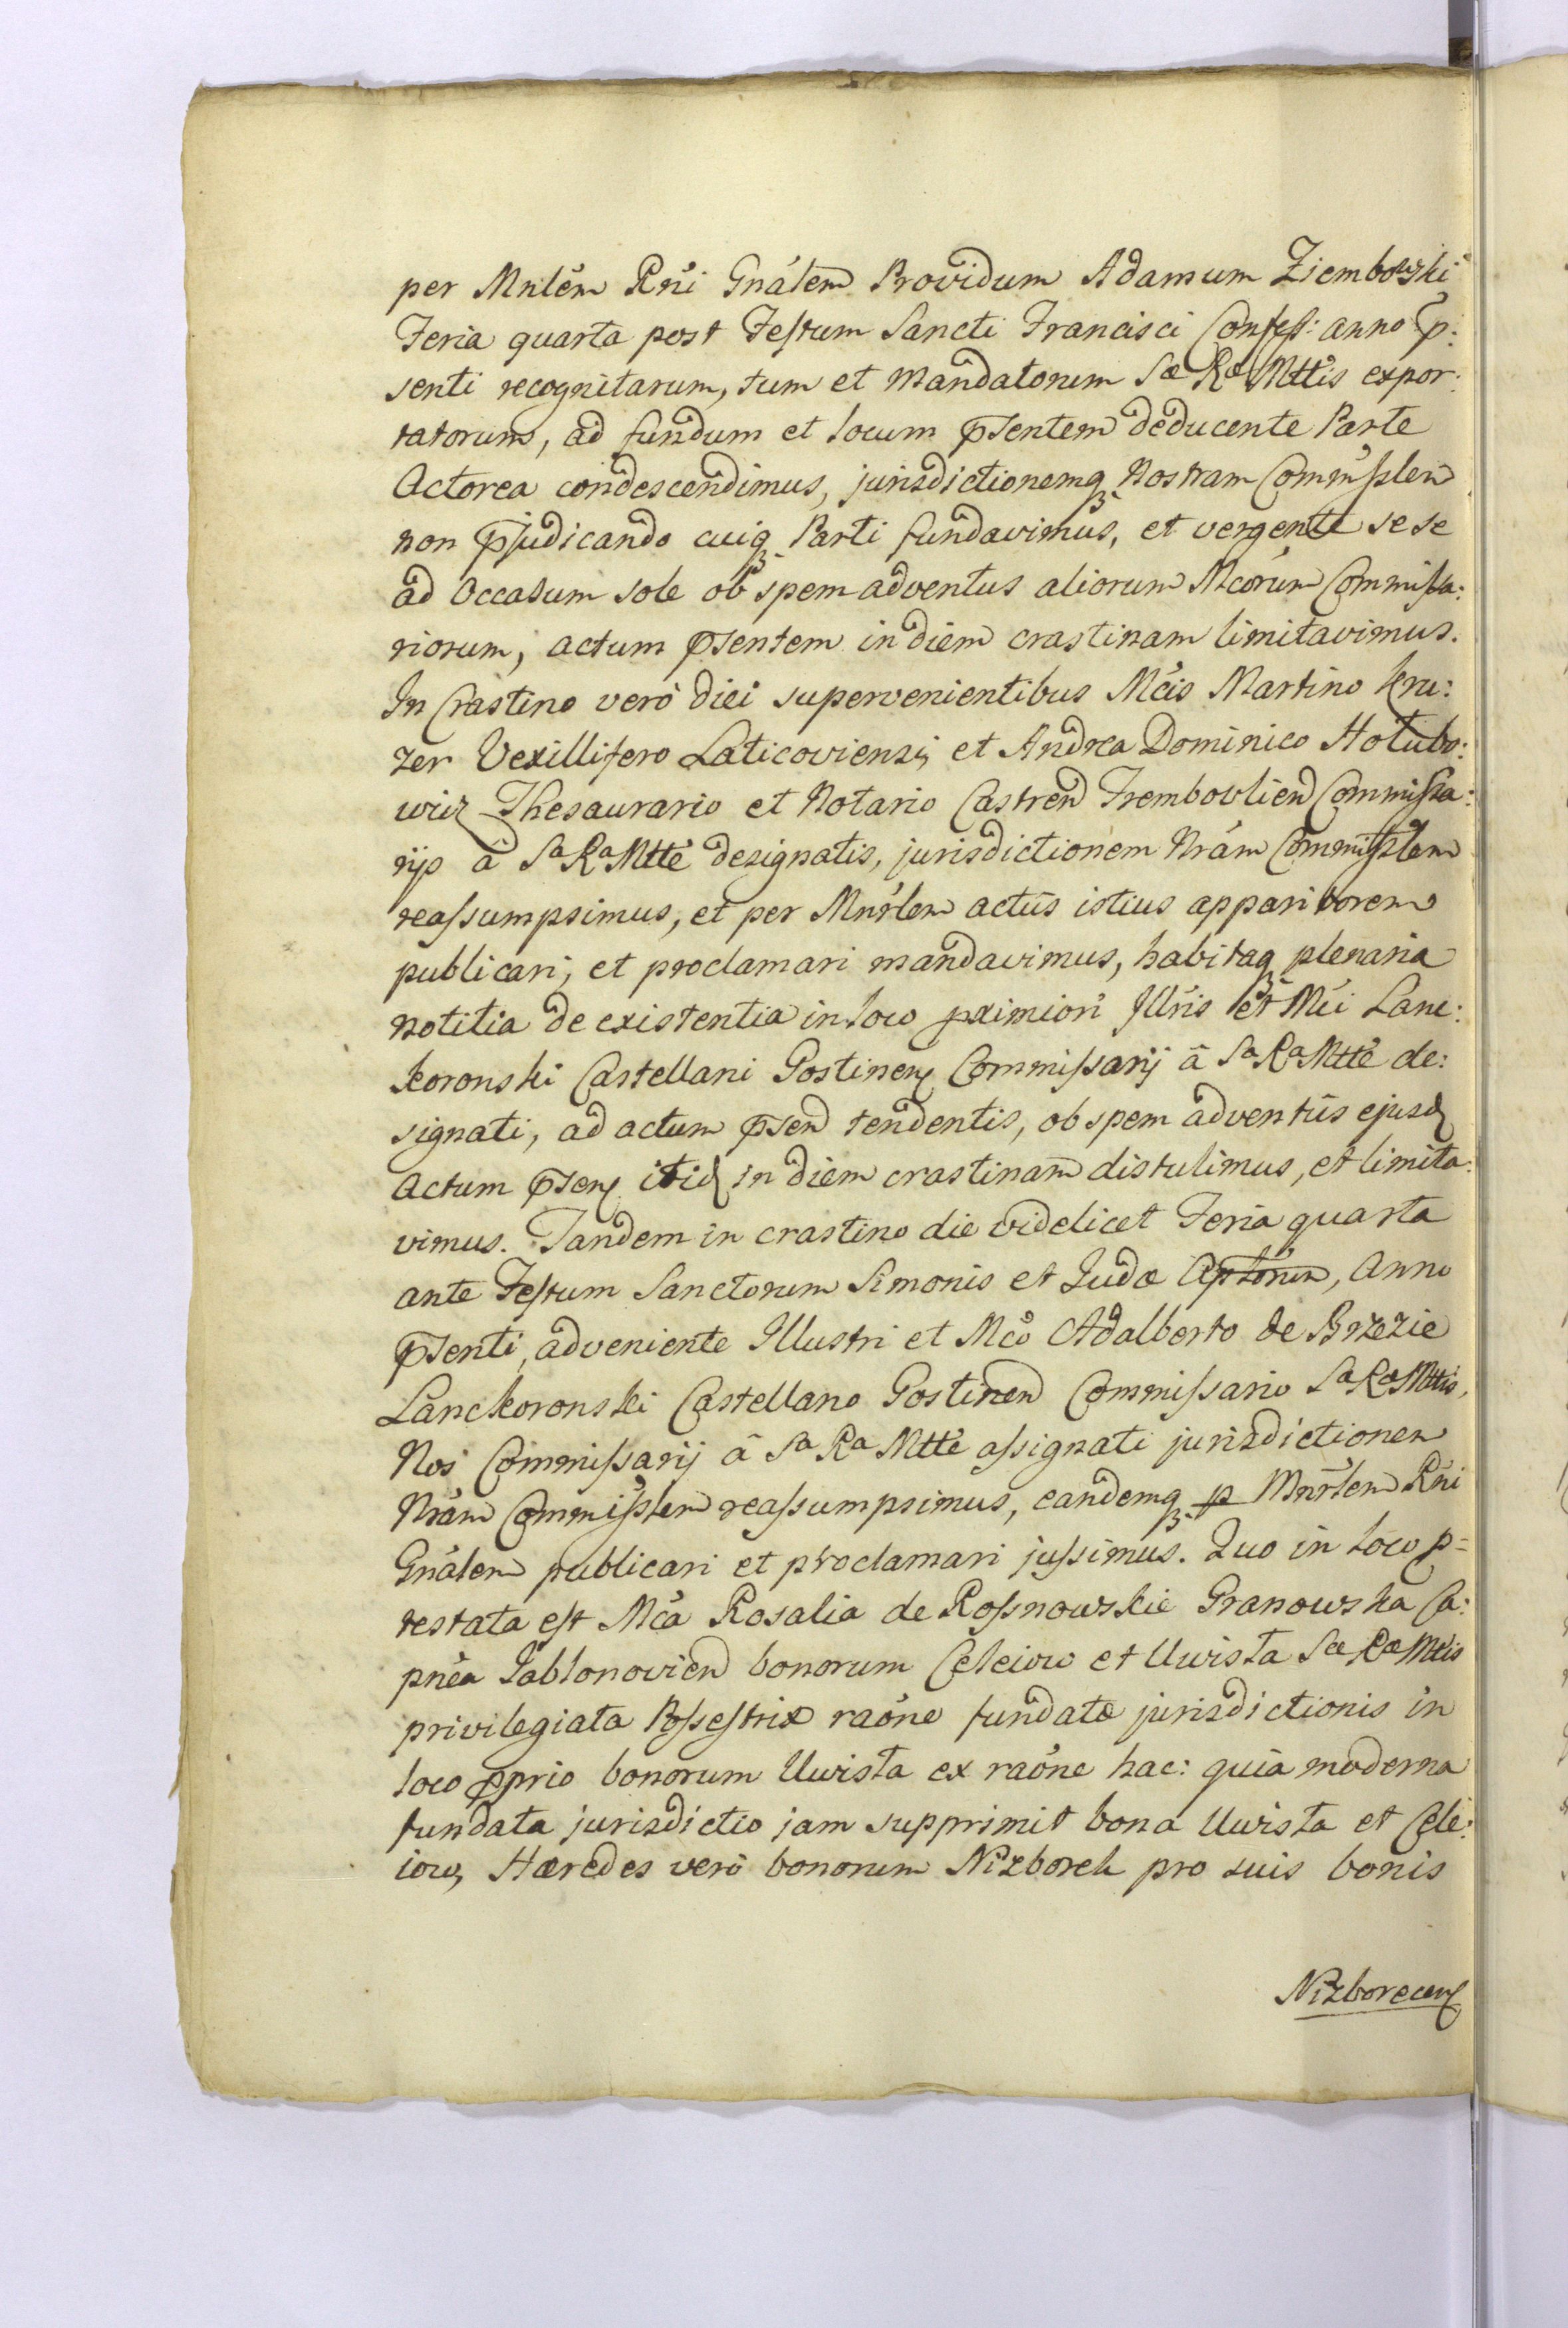 per Mnlém Rńi Gnálem Providum Adamum Ziembowski
Feria quarta post Festum Sancti Francisci Confess: anno p̄:
senti recognitarum, tum et Mandatorum Sæ Ræ Mttis expor:
tatorum, ad fundum et locum p̄sentem deducente Parte
Actorea condescendimus, jurisdictionemq₃ Nostram Commisslem
non p̄judicando cuiq₃ Parti fundavimus, et vergente sese
ad Occasum sole ob spem adventus aliorum Mcorum Commissa:
riorum, actum p̄sentem in diem crastinam limitavimus.
In Crastino verò diei supervenientibus Mcis Martino Kru:
zer Vexillifero Laticoviensi, et Andrea Dominico Hołubo:
wicz Thesaurario et Notario Castren Trembovlien Commissa:
rijs à Sa Ra Mtte designatis, jurisdictionem Nrám Commisslem
reassumpsimus, et per Mnrlem actûs istius apparitorem
publicari, et proclamari mandavimus, habitaq₃ plenaria
notitia de existentia in loco pximiori Illris et Mci Lanc:
koronski Castellani Gostinen Commissarij â Sa Ra Mtte de:
signati, ad actum p̄sen tendentis, ob spem adventûs ejusd
Actum p̄sen itid in diem crastinam distulimus, et limita:
vimus. Tandem in crastino die videlicet Feria quarta
ante Festum Sanctorum Simonis et Judæ Aptorum, Anno
p̄senti, adveniente Illustri et Mco Adalberto de Brzezie
Lanckoronski Castellano Gostinen Commissario Sa Ra Mttis,
Nos Commissarij â Sa Ra Mtte assignati jurisdictionem
Nrám Commisslem reassumpsimus, eandemq₃ p Mnrlem Rńi
Gnálem publicari et proclamari jussimus. Quo in loco p=
testata est Mca Rosalia de Rossnowskie Granowska Ca:
pnea Jablonovien bonorum Celeiow et Uwisła Sæ Ræ Mttis
privilegiata Possestrix raóne fundatæ jurisdictionis in
loco p̄prio bonorum Uwisła ex raóne hac: quia moderna
fundata jurisdictio jam supprimit bona Uwisła et Cele:
iow, Hæredes verò bonorum Nizborek pro suis bonis
Nizborecen